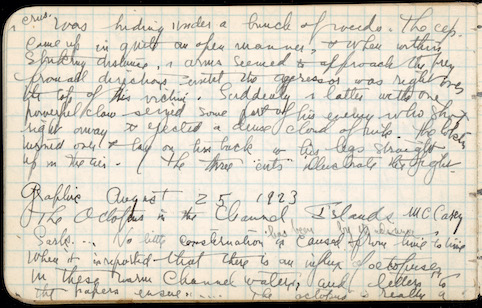 crus.
was hiding under a bunch of weeds. The cep.
came up in quite an open manner, & when within
striking distance, 8 arms seemed to approach the prey
from all directions until the aggressor was right over
the top of his victim. Suddenly the latter with one
powerful claw seized some part of his enemy who shot
right away & ejected a dense cloud of ink. The
turned over & lay on his back w his legs straight
up in the air. (The three cuts illustrate the fight.
Graphic August 25 1923
The Octopus in the Channel Islands McCasky
Sark... No little consternation is caused from time to time
when it is reported that there is an influx of octopuses
in these warm Channel waters, and letters to
the papers ensue..... The octopus is really a